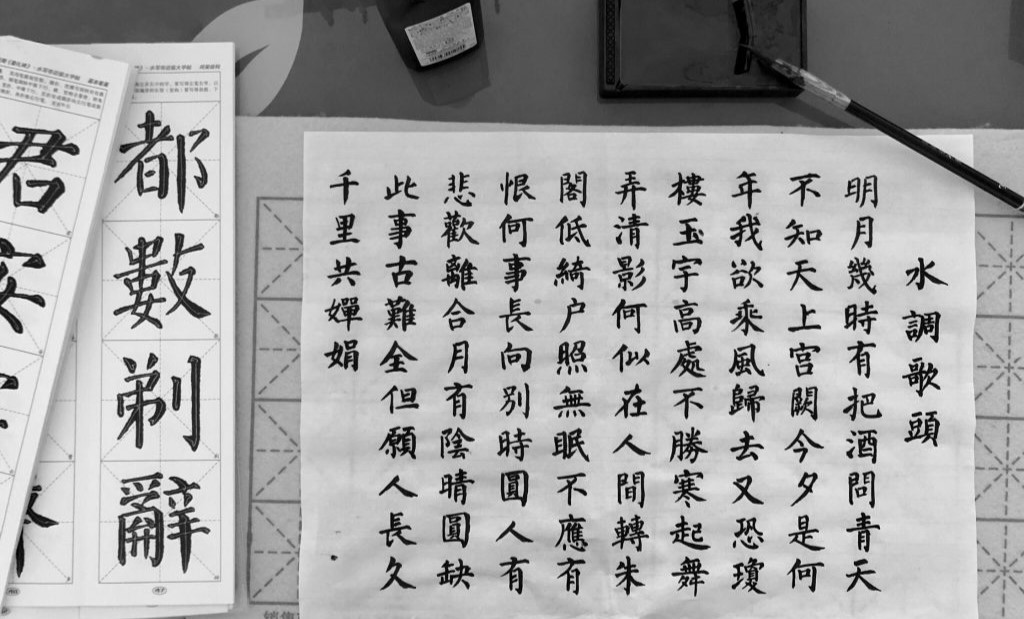 水調歌頭
明月幾時有把酒問青天
不知天上宫闕今夕是何
年我欲乘風歸去又恐瓊
樓玉宇高處不勝寒起舞
弄清影何似在人間轉朱
閣低綺户照無眠不應有
恨何事長向别時圓人有
悲歡離合月有陰晴圓缺
此事古難全但願人長久
千里共嬋娟
都數剃辭
君安